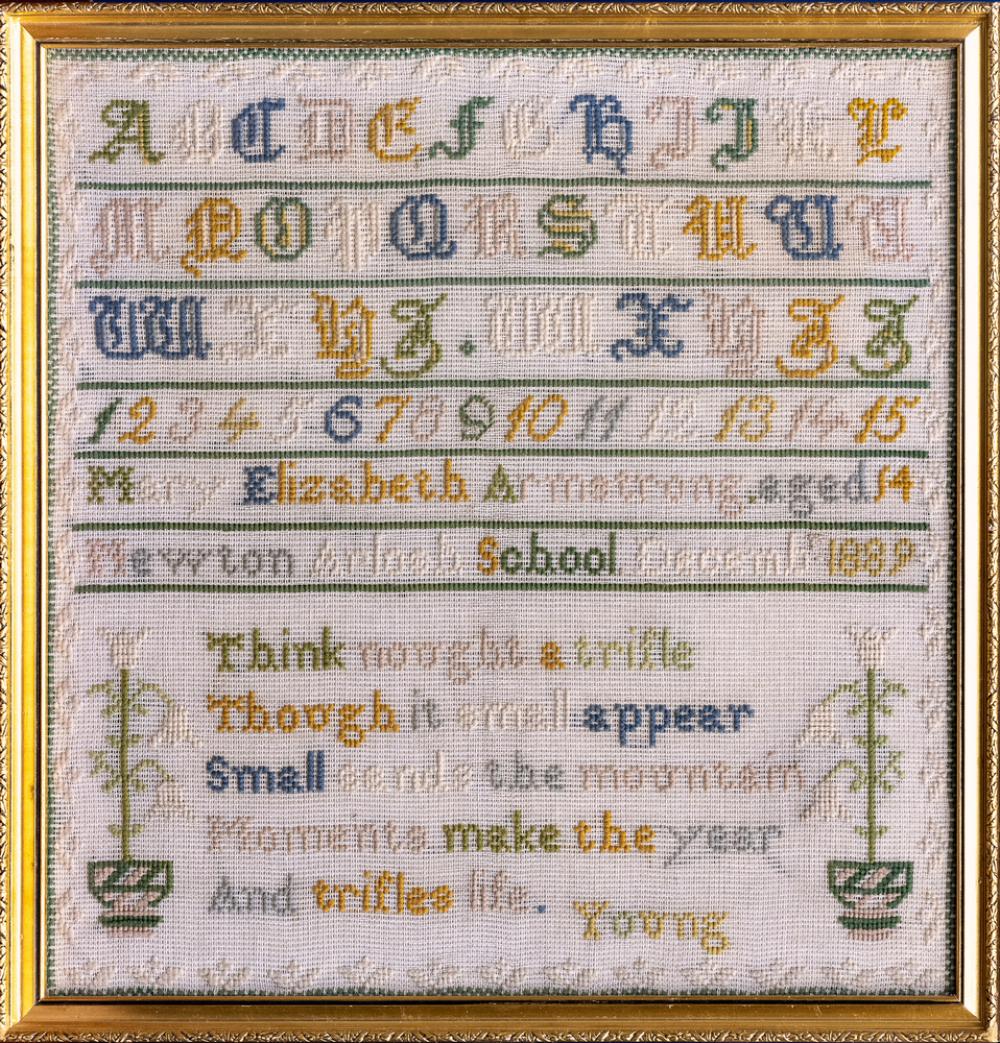 A B C D E F G H I J K L
M N O P Q R S T U V U
W X Y Z . W X Y Z Z
1 2 3 4 5 6 7 8 9 10 11 12 13 14 15
Mary Elizabeth Armstrong. aged 14
Newton Arlosh School Decemb 1889
Think nought a trifle
Though it small appear
Small sands the mountain
Moments make the year
And trifles life.
Young